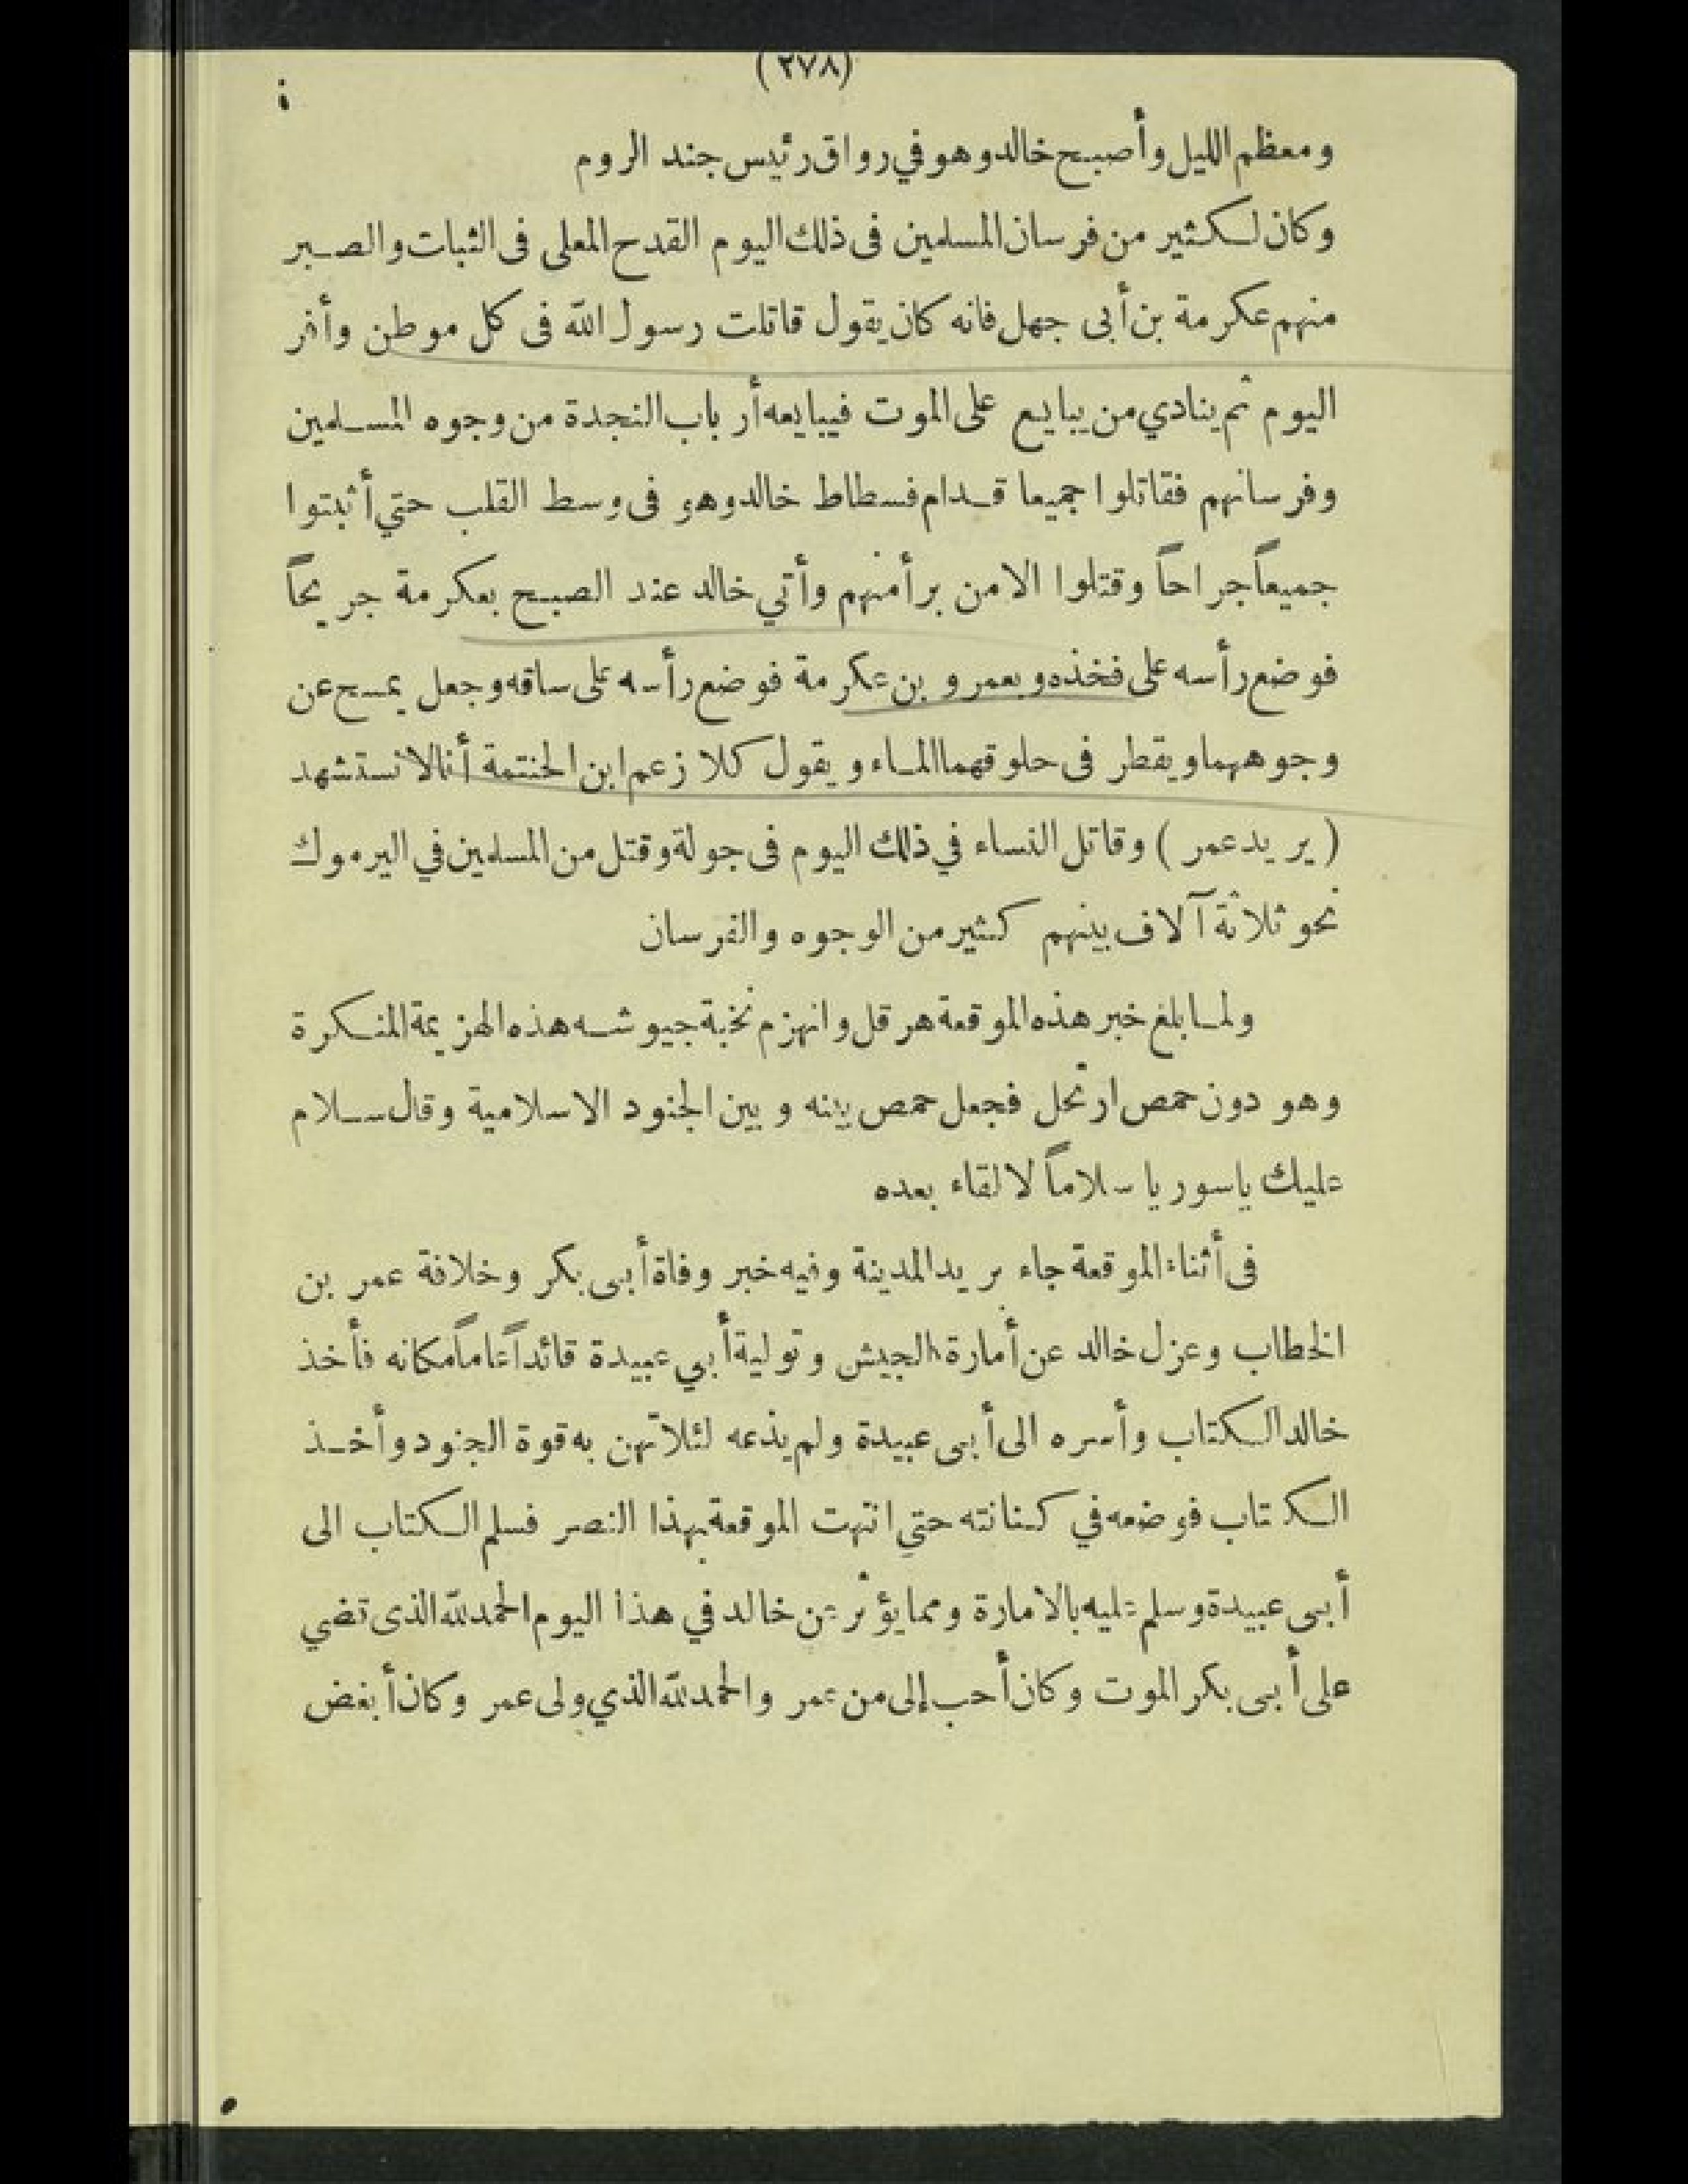 (٢٧٨)
ومعظم الليل وأصبح خالد وهو في رواق رئيس جند الروم
وكان لكثير من فرسان المسلمين فى ذلك اليوم القدح المعلى فى الثبات والصبر
منهم عكرمة بن أبى جهل فانه كان يقول قاتلت رسول الله فى كل موطن وأفر
اليوم ثم ينادي من يبايع على الموت فيبايعه أرباب النجدة من وجوه المسلمين
وفرسانهم فقاتلوا جميعا قدام فسطاط خالد وهو فى وسط القلب حتي أثبتوا
جميعاً جراحاً وقتلوا الا من برأ منهم وأتي خالد عند الصبح بعكرمة جريحاً
فوضع رأسه على فخذه وبعمرو بن عكرمة فوضع رأسه على ساقه وجعل يمسح عن
وجوههما ويقطر فى حلوقهما الماء ويقول كلا زعم ابن الحنتمة أننا لا نستشهد
(يريد عمر) وقاتل النساء في ذلك اليوم فى جولة وقتل من المسلمين في اليرموك
نحو ثلاثة آلاف بينهم كثير من الوجوه والفرسان
ولما بلغ خبر هذه الموقعة هرقل وانهزم نخبة جيوشه هذه الهزيمة المنكرة
وهو دون حمص ارتحل فجعل حمص بينه وبين الجنود الاسلامية وقال سلام
عليك ياسوريا سلاماً لا لقاء بعده
فى أثناء الموقعة جاء بريد المدينة وفيه خبر وفاة أبى بكر وخلافة عمر بن
الخطاب وعزل خالد عن أمارة الجيش وتولية أبي عبيدة قائداً عاماً مكانه فأخذ
خالد الكتاب وأسره الى أبى عبيدة ولم يذعه لئلا تهن به قوة الجنود وأخذ
الكتاب فوضعه في كنانته حتي انتهت الموقعة بهذا النصر فسلم الكتاب الى
أبى عبيدة وسلم عليه بالامارة ومما يؤثر عن خالد في هذا اليوم الحمد لله الذى قضي
على أبى بكر الموت وكان أحب إلى من عمر والحمد لله الذي ولى عمر وكان أبغض